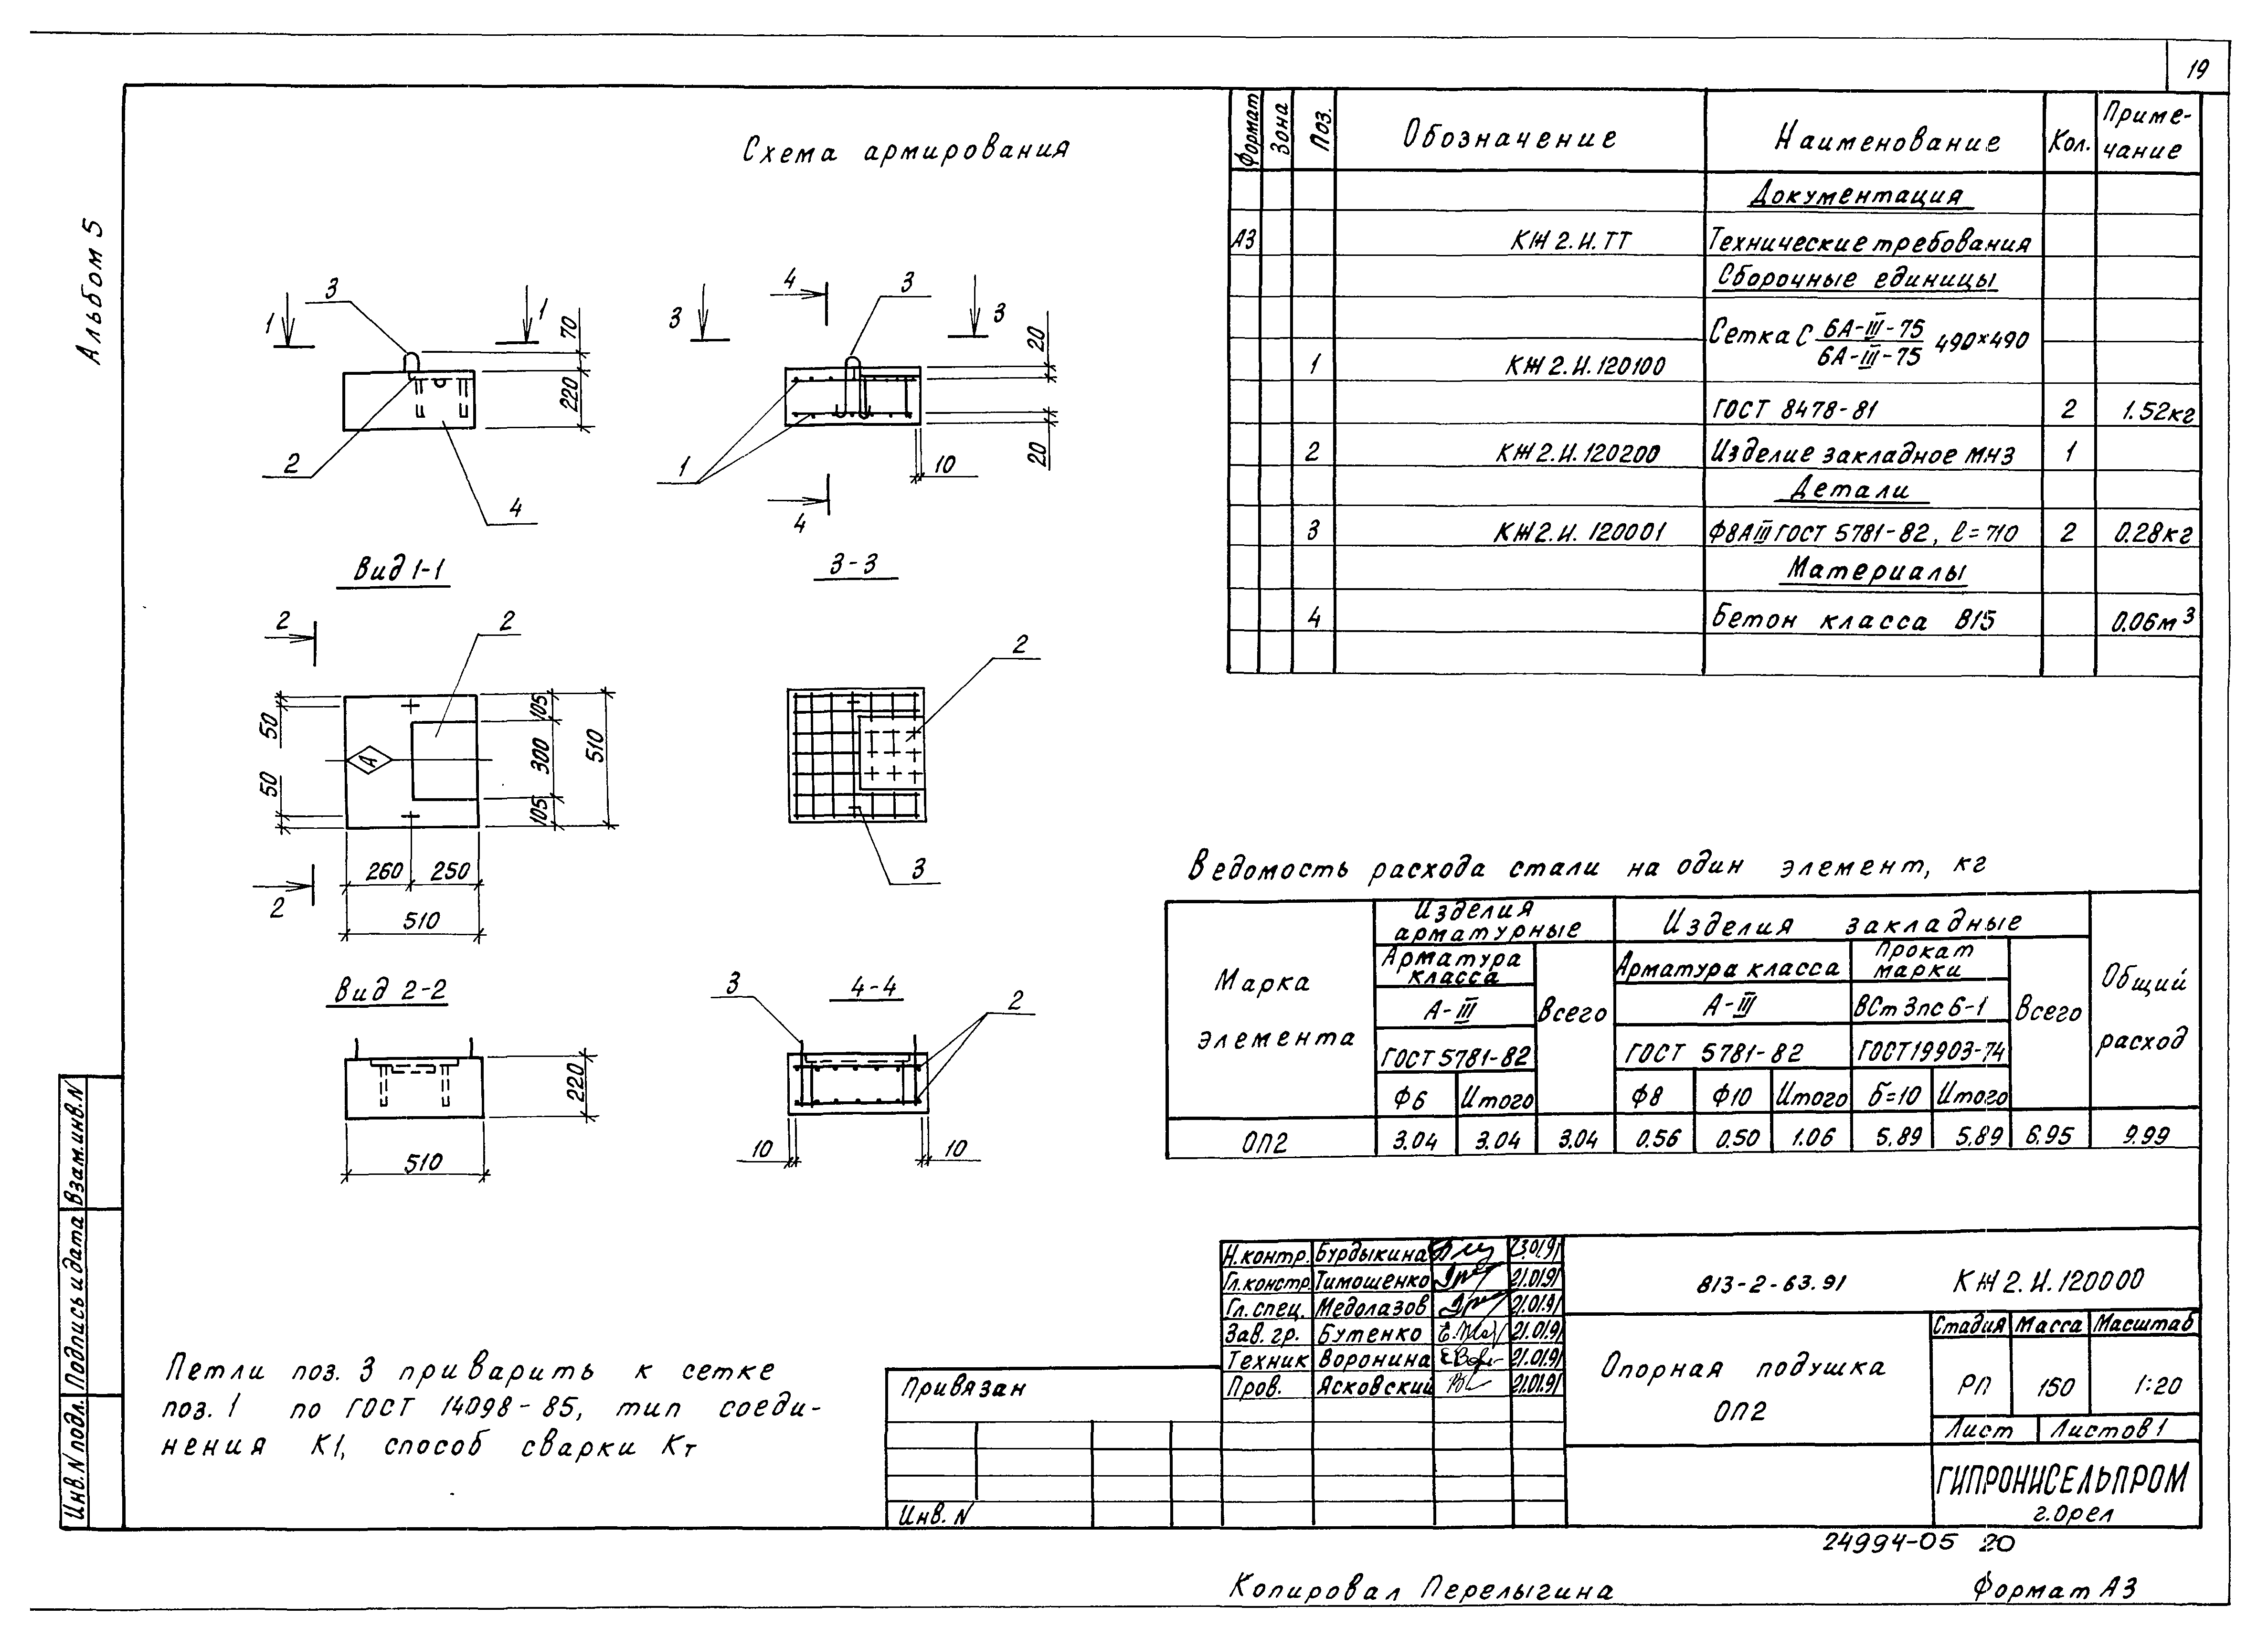 19
Альбом 5
Схема армирования
3
1
1
70
220
2
4
4
3
3
3
20
20
10
1
4
Вид 1-1
3-3
2
2
50
50
105
300
105
510
А
260
250
510
2
2
3
Вид 2-2
4-4
220
510
3
2
10
10
Формат
Зона
Поз.
Обозначение
Наименование
Кол.
Приме-
чание
Документация
А3 КЖ2.И.ТТ Технические требования
Сборочные единицы
1 КЖ2.И.120100 Сетка С 6А-III-75 / 6А-III-75 490×490
ГОСТ 8478-81 2 1.52кг
2 КЖ2.И.120200 Изделие закладное МН3 1
Детали
3 КЖ2.И.120001 Ф8АIII ГОСТ 5781-82, ℓ=710 2 0.28кг
Материалы
4 Бетон класса В15 0.06м³
Ведомость расхода стали на один элемент, кг
Марка
элемента
Изделия
арматурные
Изделия закладные
Общий
расход
Арматура
класса
Всего
Арматура класса
Прокат
марки
Всего
А-III
А-III
ВСт3пс6-1
ГОСТ 5781-82
ГОСТ 5781-82
ГОСТ19903-74
Ф6 Итого Ф8 Ф10 Итого Б=10 Итого
ОП2 3.04 3.04 3.04 0.56 0.50 1.06 5.89 5.89 6.95 9.99
Петли поз. 3 приварить к сетке
поз. 1 по ГОСТ 14098-85, тип соеди-
нения К1, способ сварки Кт
Взам.инв.N
Подпись и дата
Инв.N подл.
Привязан
Инв. N
Н.контр. Бурдыкина 23.01.91
Гл.констр. Тимошенко 21.01.91
Гл.спец. Медолазов 21.01.91
Зав.гр. Бутенко 21.01.91
Техник Воронина 21.01.91
Пров. Ясковский 21.01.91
813-2-63.91 КЖ2.И.120000
Опорная подушка
ОП2
Стадия Масса Масштаб
РП 150 1:20
Лист Листов 1
ГИПРОНИСЕЛЬПРОМ
г.Орел
24994-05 20
Копировал Перелыгина
Формат А3